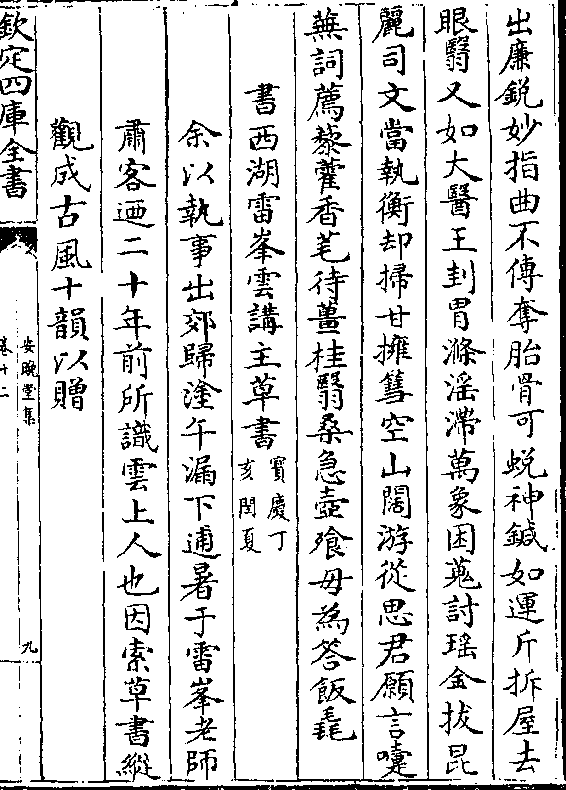 出廉鋭妙指曲不傳奪胎骨可蜕神鍼如運斤拆屋去
眼翳又如大醫王刲胃滌淫滯萬象困蒐討瑶金拔昆
麗司文當執衡却掃甘擁篲空山闊游從思君願言嚏
蕪詞薦藜藿香芼待薑桂翳桑急壺飱毋為答飯毳
書西湖雷峯雲講主草書寳慶丁
亥閏夏
余以執事出郊歸塗午漏下逋暑于雷峯老師
肅客迺二十年前所識雲上人也因索草書縱
觀成古風十韻以贈
欽定四庫全書
安晚堂集
卷十二
九